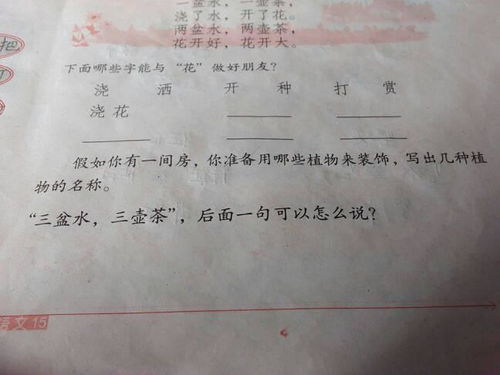 一盆水，一壶茶，
浇了水，开了花。
两盆水，两壶茶，
花开好，花开大。
把
下面哪些字能与“花”做好朋友？
浇 洒 开 种 打 赏
浇花
假如你有一间房，你准备用哪些植物来装饰，写出几种植
物的名称。
“三盆水，三壶茶”，后面一句可以怎么说？
语文 15